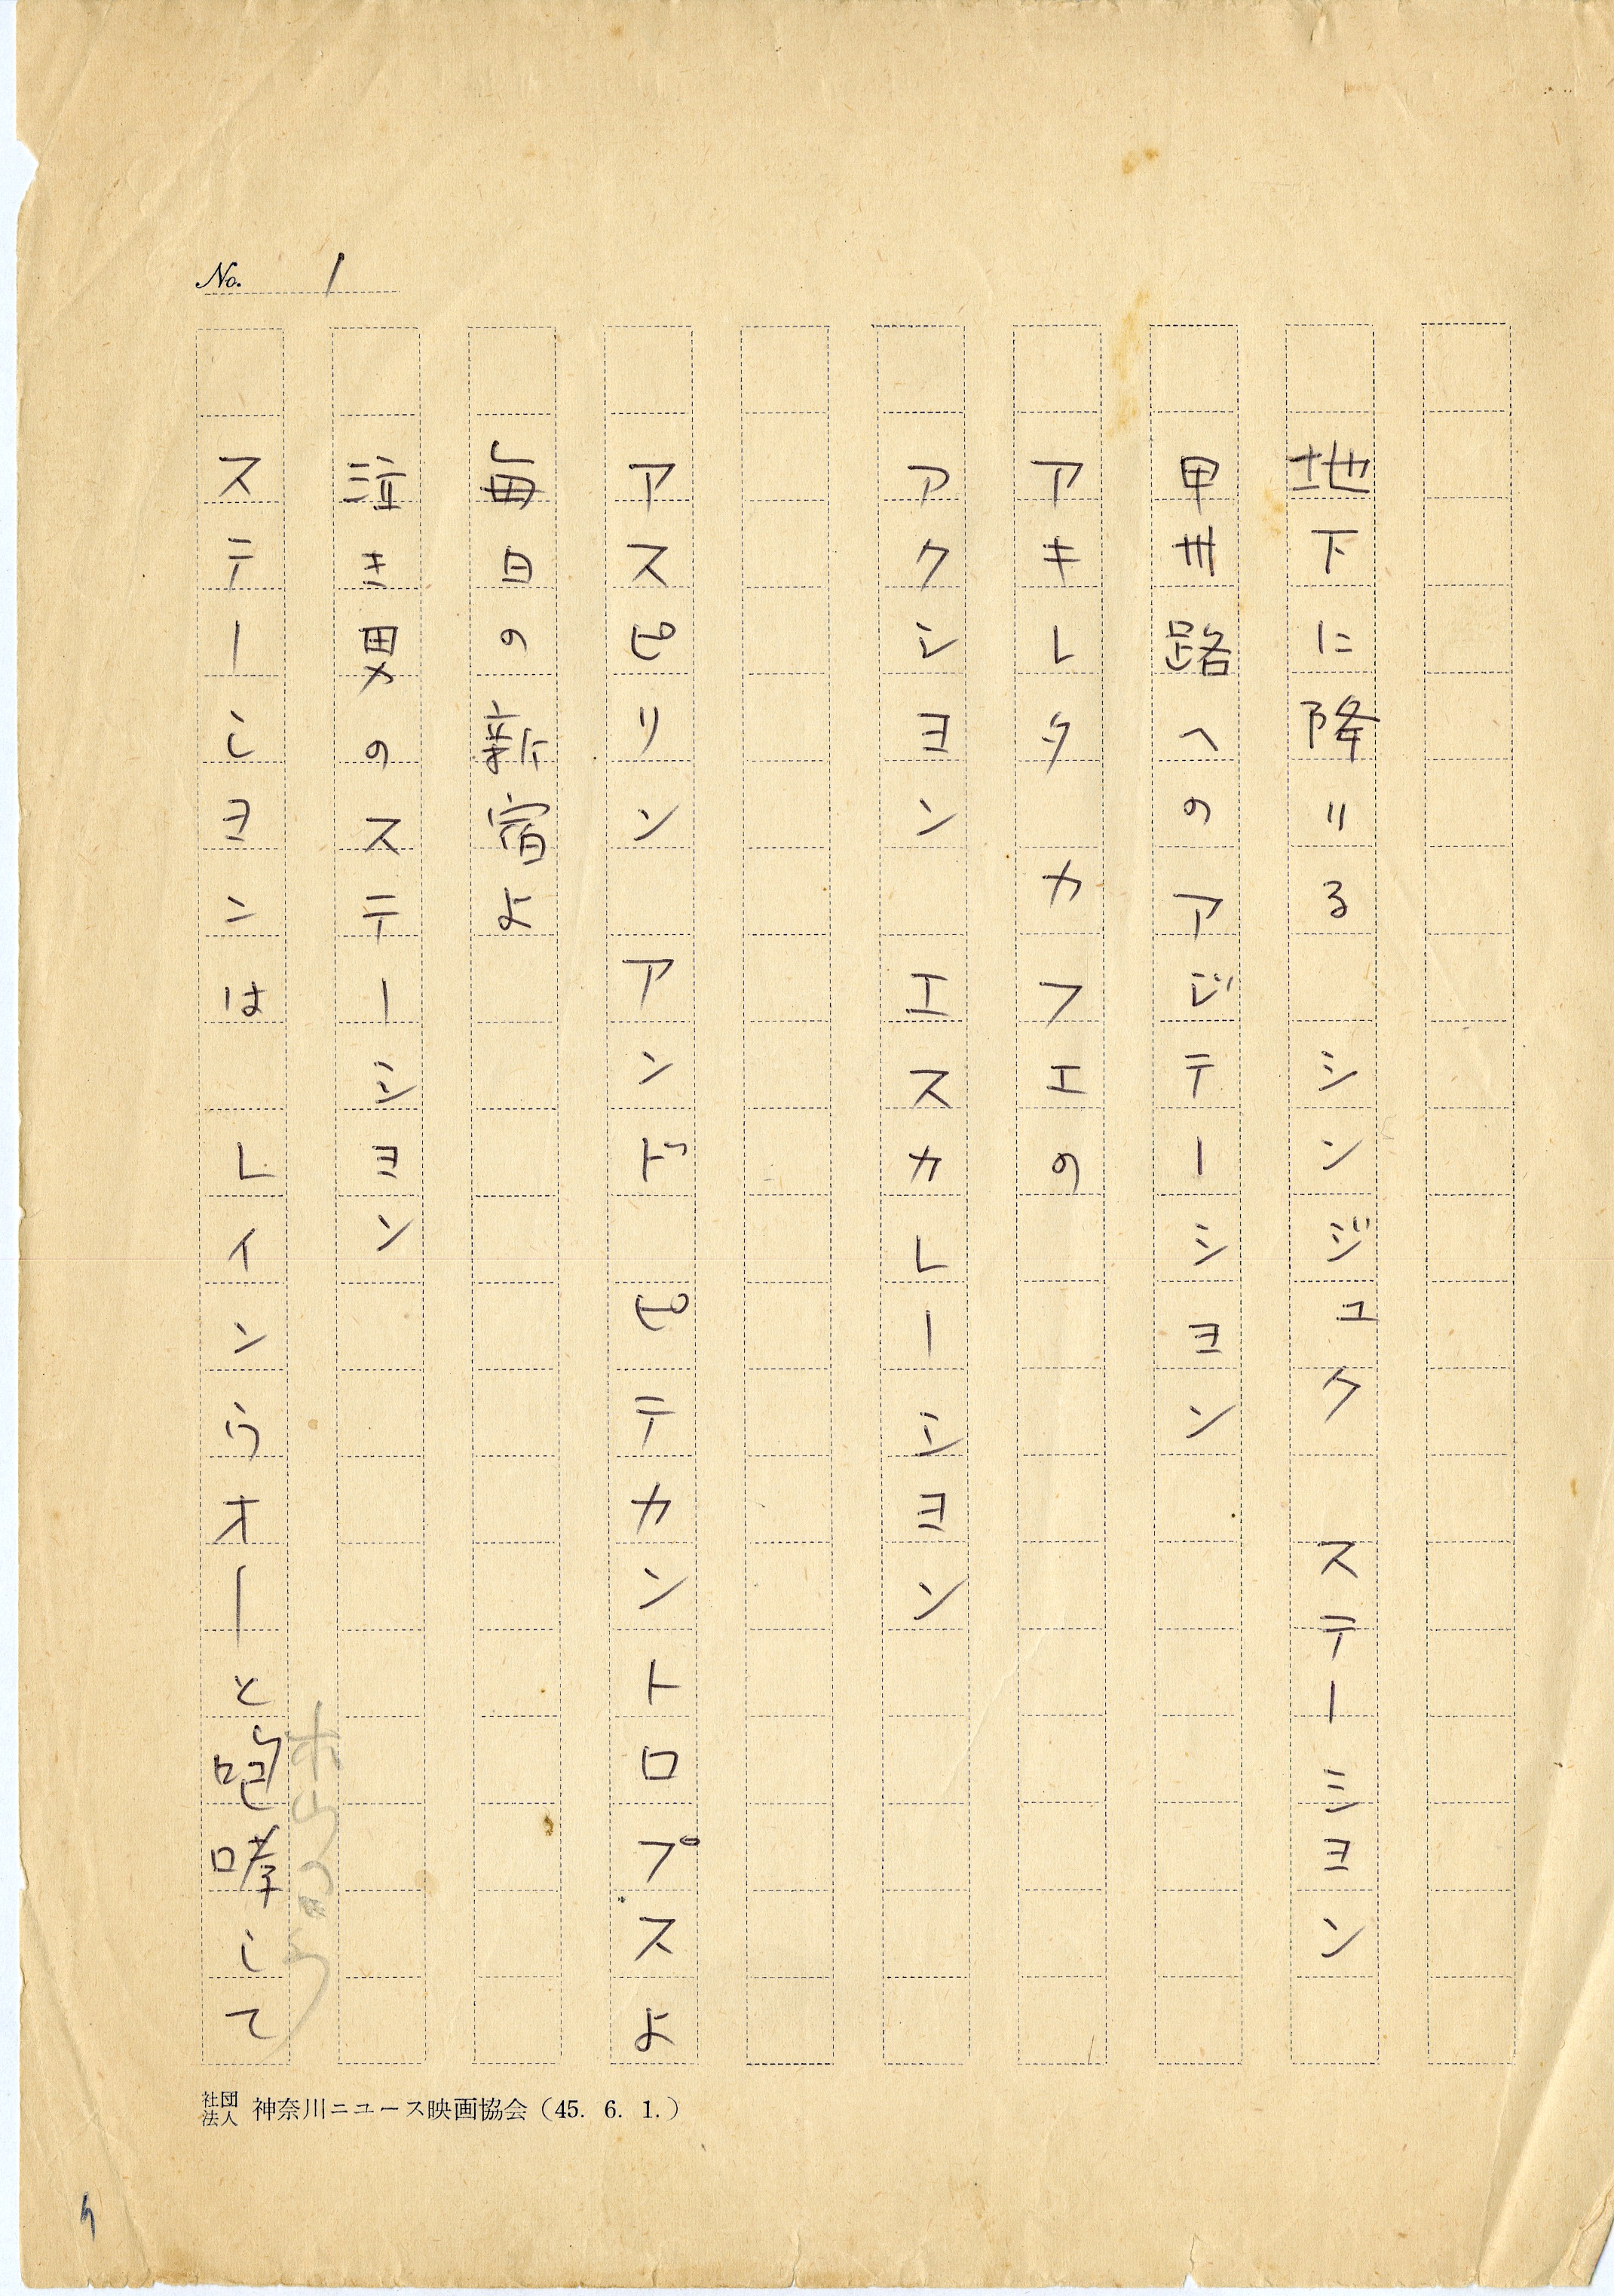 No. 1
地下に降りる　シンジュク　ステーション
甲州路へのアジテーション
アキレタ　カフエの
アクション　エスカレーション
アスピリン　アンド　ピテカントロプスよ
毎日の新宿よ
泣き男のステーション
ステーションは　レインウオーと咆哮して
社団法人 神奈川ニュース映画協会（45. 6. 1.）